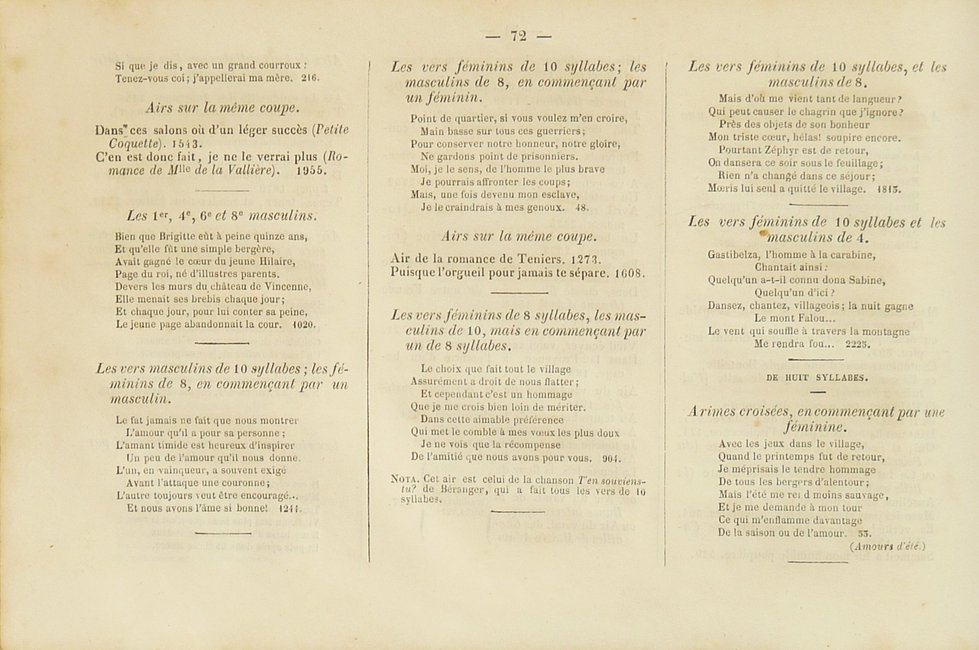 — 72 —
Si que je dis, avec un grand courroux :
Tenez-vous coi; j'appellerai ma mère. 216.
Airs sur la même coupe.
Dans ces salons où d'un léger succès (Petite
Coquette). 1543.
C'en est donc fait, je ne le verrai plus (Ro-
mance de Mlle de la Vallière). 1955.
Les 1er, 4e, 6e et 8e masculins.
Bien que Brigitte eût à peine quinze ans,
Et qu'elle fût une simple bergère,
Avait gagné le cœur du jeune Hilaire,
Page du roi, né d'illustres parents.
Devers les murs du château de Vincenne,
Elle menait ses brebis chaque jour;
Et chaque jour, pour lui conter sa peine,
Le jeune page abandonnait la cour. 1020.
Les vers masculins de 10 syllabes ; les fé-
minins de 8, en commençant par un
masculin.
Le fat jamais ne fait que nous montrer
L'amour qu'il a pour sa personne ;
L'amant timide est heureux d'inspirer
Un peu de l'amour qu'il nous donne.
L'un, en vainqueur, a souvent exigé
Avant l'attaque une couronne;
L'autre toujours veut être encouragé...
Et nous avons l'âme si bonne! 1244.
Les vers féminins de 10 syllabes; les
masculins de 8, en commençant par
un féminin.
Point de quartier, si vous voulez m'en croire,
Main basse sur tous ces guerriers;
Pour conserver notre honneur, notre gloire,
Ne gardons point de prisonniers.
Moi, je le sens, de l'homme le plus brave
Je pourrais affronter les coups;
Mais, une fois devenu mon esclave,
Je le craindrais à mes genoux. 48.
Airs sur la même coupe.
Air de la romance de Teniers. 1273.
Puisque l'orgueil pour jamais te sépare. 1608.
Les vers féminins de 8 syllabes, les mas-
culins de 10, mais en commençant par
un de 8 syllabes.
Le choix que fait tout le village
Assurément a droit de nous flatter;
Et cependant c'est un hommage
Que je me crois bien loin de mériter.
Dans cette aimable préférence
Qui met le comble à mes vœux les plus doux
Je ne vois que la récompense
De l'amitié que nous avons pour vous. 904.
NOTA. Cet air est celui de la chanson T'en souviens-
tu? de Béranger, qui a fait tous les vers de 10
syllabes.
Les vers féminins de 10 syllabes, et les
masculins de 8.
Mais d'où me vient tant de langueur?
Qui peut causer le chagrin que j'ignore?
Près des objets de son bonheur
Mon triste cœur, hélas! soupire encore.
Pourtant Zéphyr est de retour,
On dansera ce soir sous le feuillage;
Rien n'a changé dans ce séjour;
Mœris lui seul a quitté le village. 1815.
Les vers féminins de 10 syllabes et les
masculins de 4.
Gastibelza, l'homme à la carabine,
Chantait ainsi :
Quelqu'un a-t-il connu dona Sabine,
Quelqu'un d'ici ?
Dansez, chantez, villageois; la nuit gagne
Le mont Falou...
Le vent qui souffle à travers la montagne
Me rendra fou... 2225.
DE HUIT SYLLABES.
A rimes croisées, en commençant par une
féminine.
Avec les jeux dans le village,
Quand le printemps fut de retour,
Je méprisais le tendre hommage
De tous les bergers d'alentour;
Mais l'été me rend moins sauvage,
Et je me demande à mon tour
Ce qui m'enflamme davantage
De la saison ou de l'amour. 53.
(Amours d'été.)